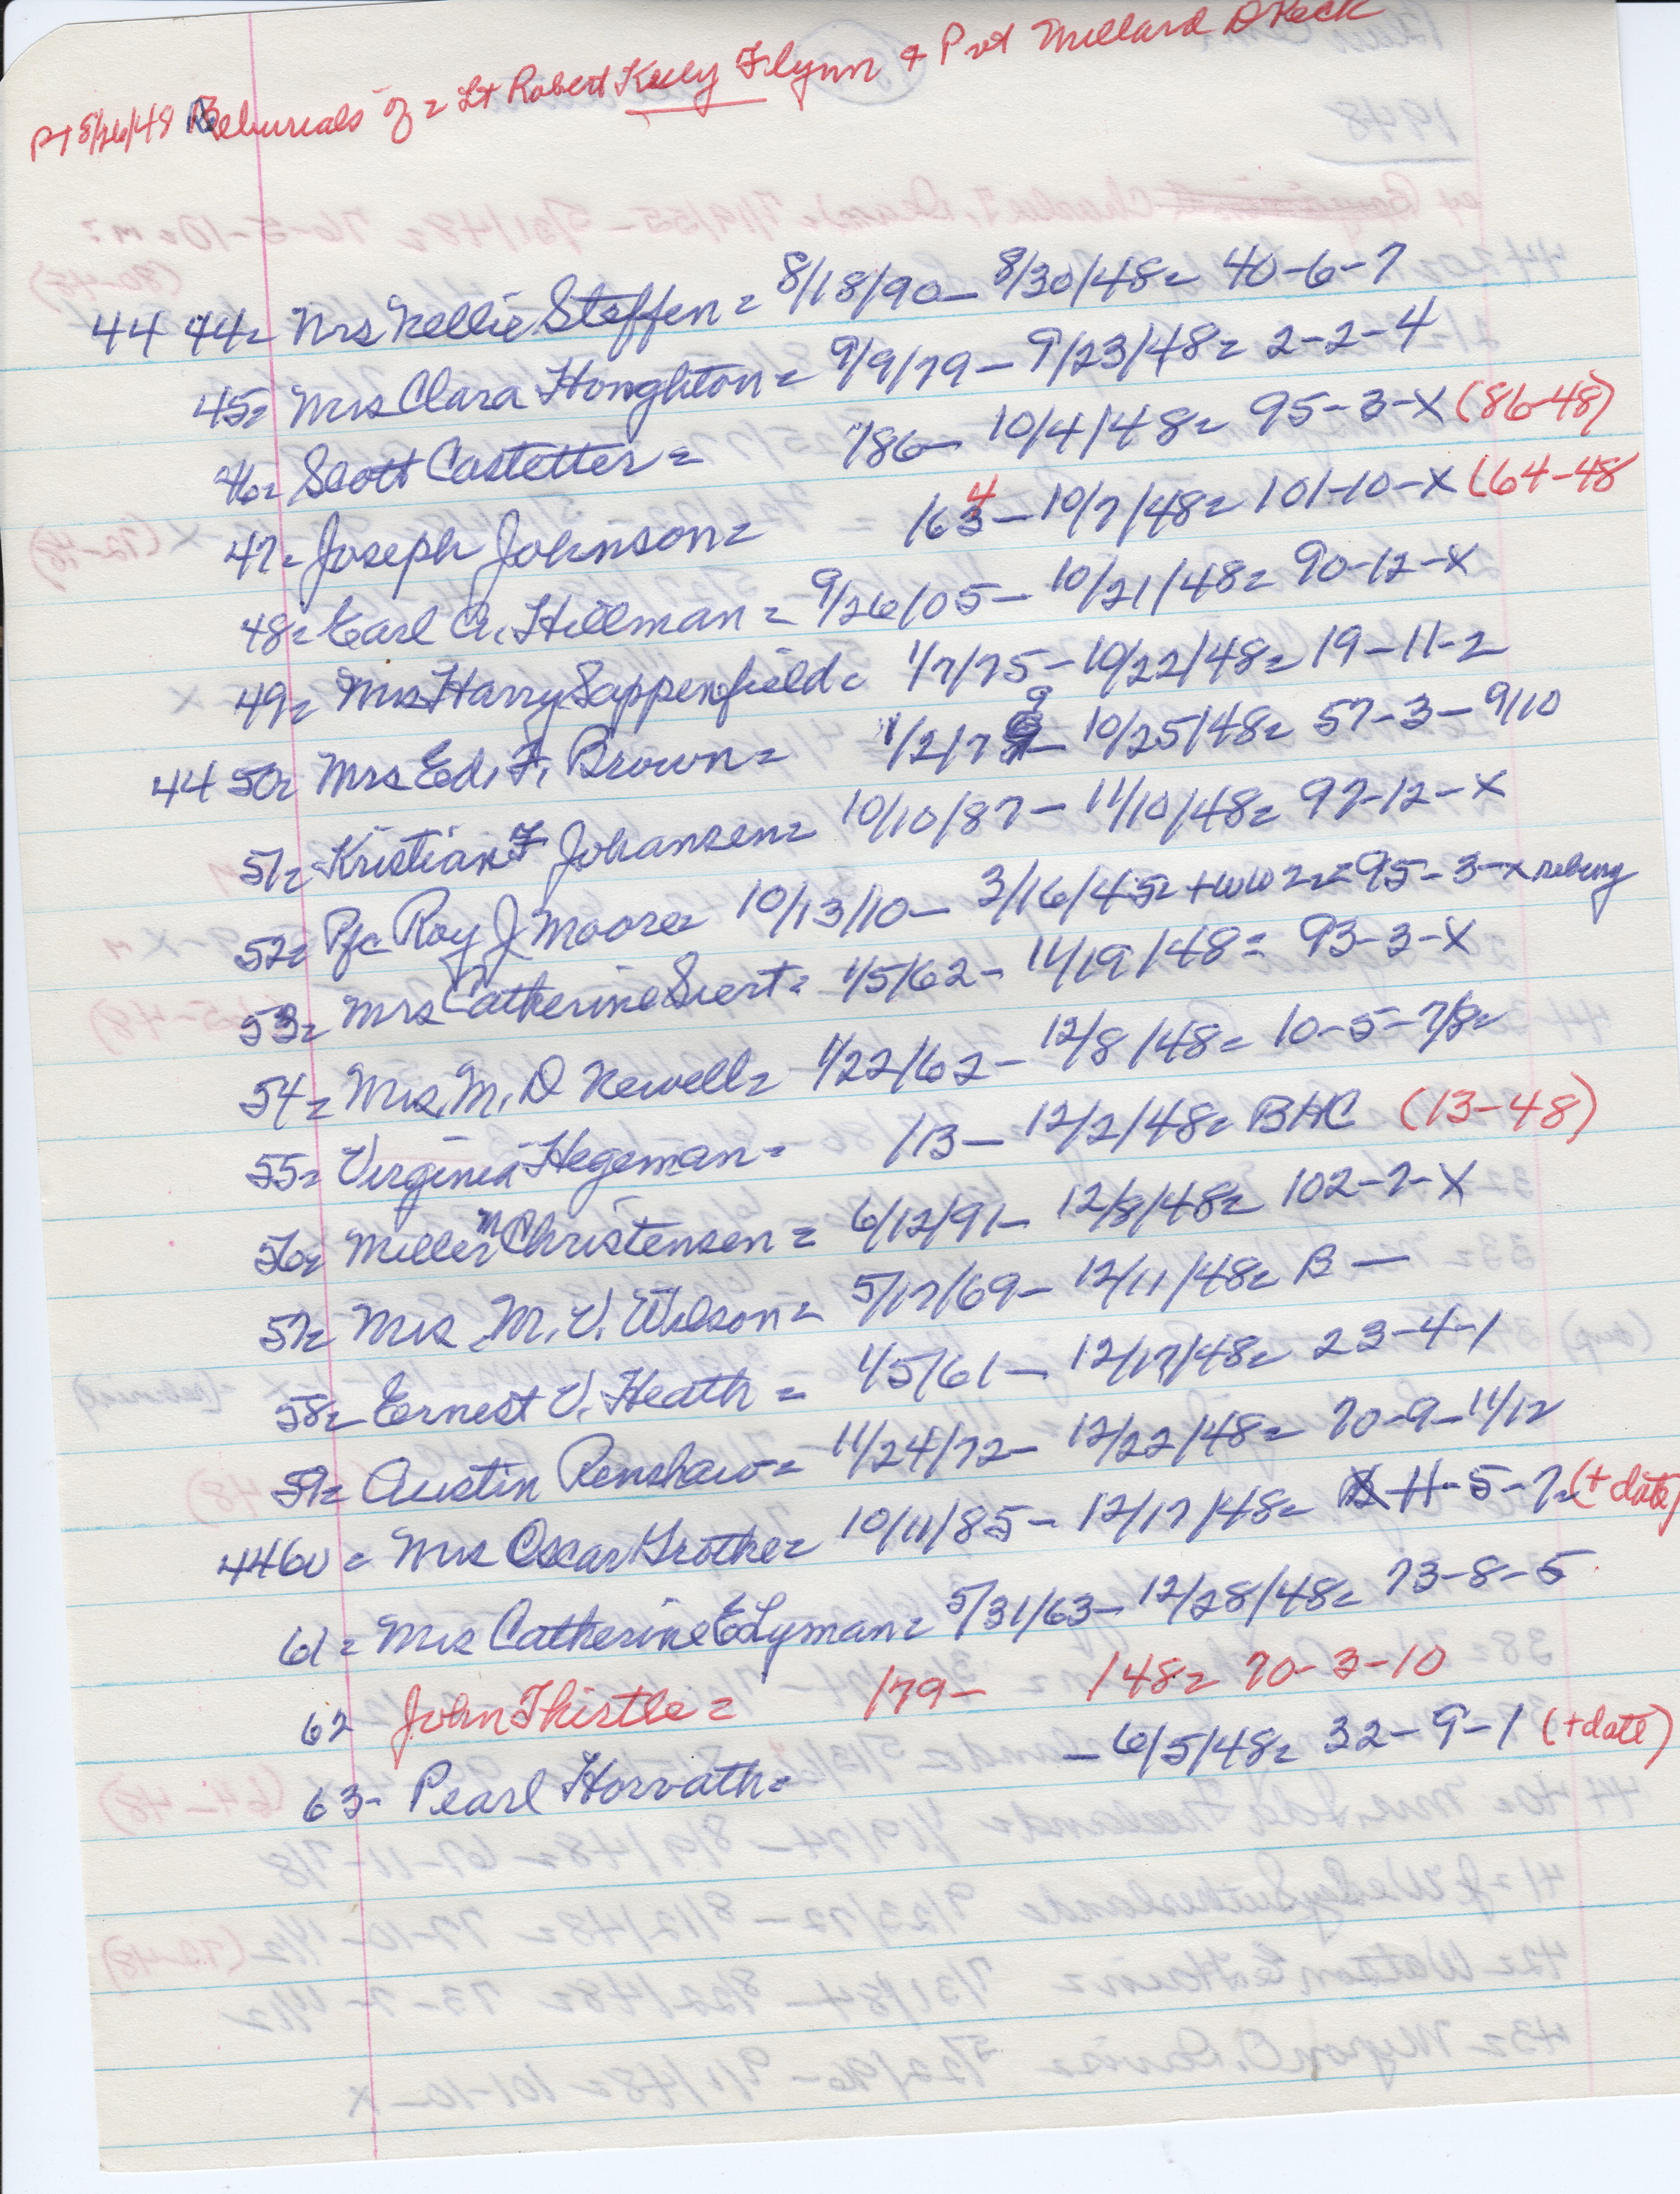 PT 8/26/48 Reburials of = Lt Robert Kelly Flynn + Pvt Millard D Peck
44 44= Mrs Nellie Steffen = 8/18/90 - 8/30/48= 40-6-7
45= Mrs Clara Honghton = 9/9/79 - 9/23/48= 2-2-4
46= Scott Castetter = /86 - 10/4/48= 95-3-X (86-48)
47= Joseph Johnson= 4
/63 - 10/7/48= 101-10-X (64-48
48= Earl A. Hillman = 9/26/05 - 10/21/48= 90-12-X
49= Mrs Harry Sappenfield= 1/7/75 - 10/22/48= 19-11-2
44 50= Mrs Ed. F. Brown = 1/2/79 - 10/25/48= 57-3-9/10
51= Kristian F Johansen= 10/10/87 - 11/10/48= 97-12-X
52= Pfc Roy J Moore= 10/13/10 - 3/16/45= + WW 2 = 95-3-X
53= Mrs Catherine Siert= 1/5/62 - 11/19/48= 93-3-X
54= Mrs. M. D Newell= 1/22/62 - 12/8/48= 10-5-7/8=
55= Virginia Hegeman= /13 - 12/2/48= BHC (13-48)
56= Miller M Christensen = 6/12/91 - 12/8/48= 102-7-X
57= Mrs M. V. Wilson= 5/17/69 - 12/11/48= B -
58= Ernest V. Heath = 1/5/61 - 12/17/48= 23-4-1
59= Austin Renshaw= 11/24/72 - 12/22/48= 70-9-11/12
4460 = Mrs Oscar Grothe= 10/11/85 - 12/17/48= 11-5-7= (+ date)
61= Mrs Catherine E Lyman= 5/31/63 - 12/28/48= 73-8-5
62 John Thistle= /79 - /48= 70-3-10
63- Pearl Horvath= - 6/5/48= 32-9-1 (+date)